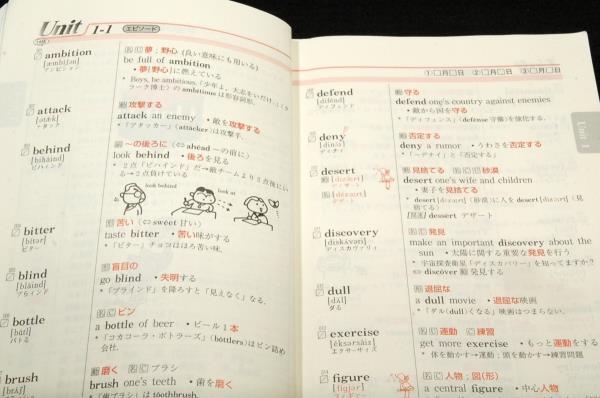 Unit 1-1 エピソード
ambition
アンビション
夢；野心 (良い意味にも用いる)
be full of ambition
・夢[野心]に燃えている
attack
アタック
攻撃する
attack an enemy ・敵を攻撃する
*「アタッカー」(attacker)は攻撃手.
behind
[biháind]
ビハインド
～の後ろに (⇔ahead ～の前に)
look behind ・後ろを見る
* 2点「ビハインド」だ→敵チームより2点後にいる→2点負けている
look behind look at
bitter
[bítər]
ビター
苦い (⇔sweet 甘い)
taste bitter ・苦い味がする
*「ビター」チョコはほろ苦い味.
blind
[bláind]
ブラインド
盲目の
go blind ・失明する
*「ブラインド」を降ろすと「見えなく」なる.
bottle
バトる
ビン
a bottle of beer ・ビール1本
*「コカコーラ・ボトラーズ」(bottlers)はビン詰め
会社.
brush
磨く ブラシ
brush one's teeth ・歯を磨く
*「歯ブラシ」は toothbrush.
①□月□日 ②□月□日 ③□月□日
Unit 1
defend
[difénd]
ディフェンド
守る
defend one's country against enemies
・敵から国を守る
*「ディフェンス」(defense 守備)を強化する.
deny
[dinái]
ディナイ
否定する
deny a rumor ・うわさを否定する
*「～デナイ」と「否定する」
desert
デザート
見捨てる 砂漠
desert one's wife and children
・妻子を見捨てる
捨てる)
dessert デザート
discovery
[diskʌ́vəri]
ディスカヴァリィ
発見
make an important discovery about the
sun ・太陽に関する重要な発見を行う
* 宇宙探査衛星「ディスカバリー」を知ってますか?
⇔discóver 発見する
dull
[dʌ́l]
ダる
退屈な
a dull movie ・退屈な映画
*「ダル(dull)くなる」映画はつまらない.
exercise
[éksərsàiz]
エクササイズ
運動 練習
get more exercise ・もっと運動をする
* 体を動かす→運動；頭を動かす→練習問題
figure
[fígjər]
人物；図(形)
a central figure ・中心人物